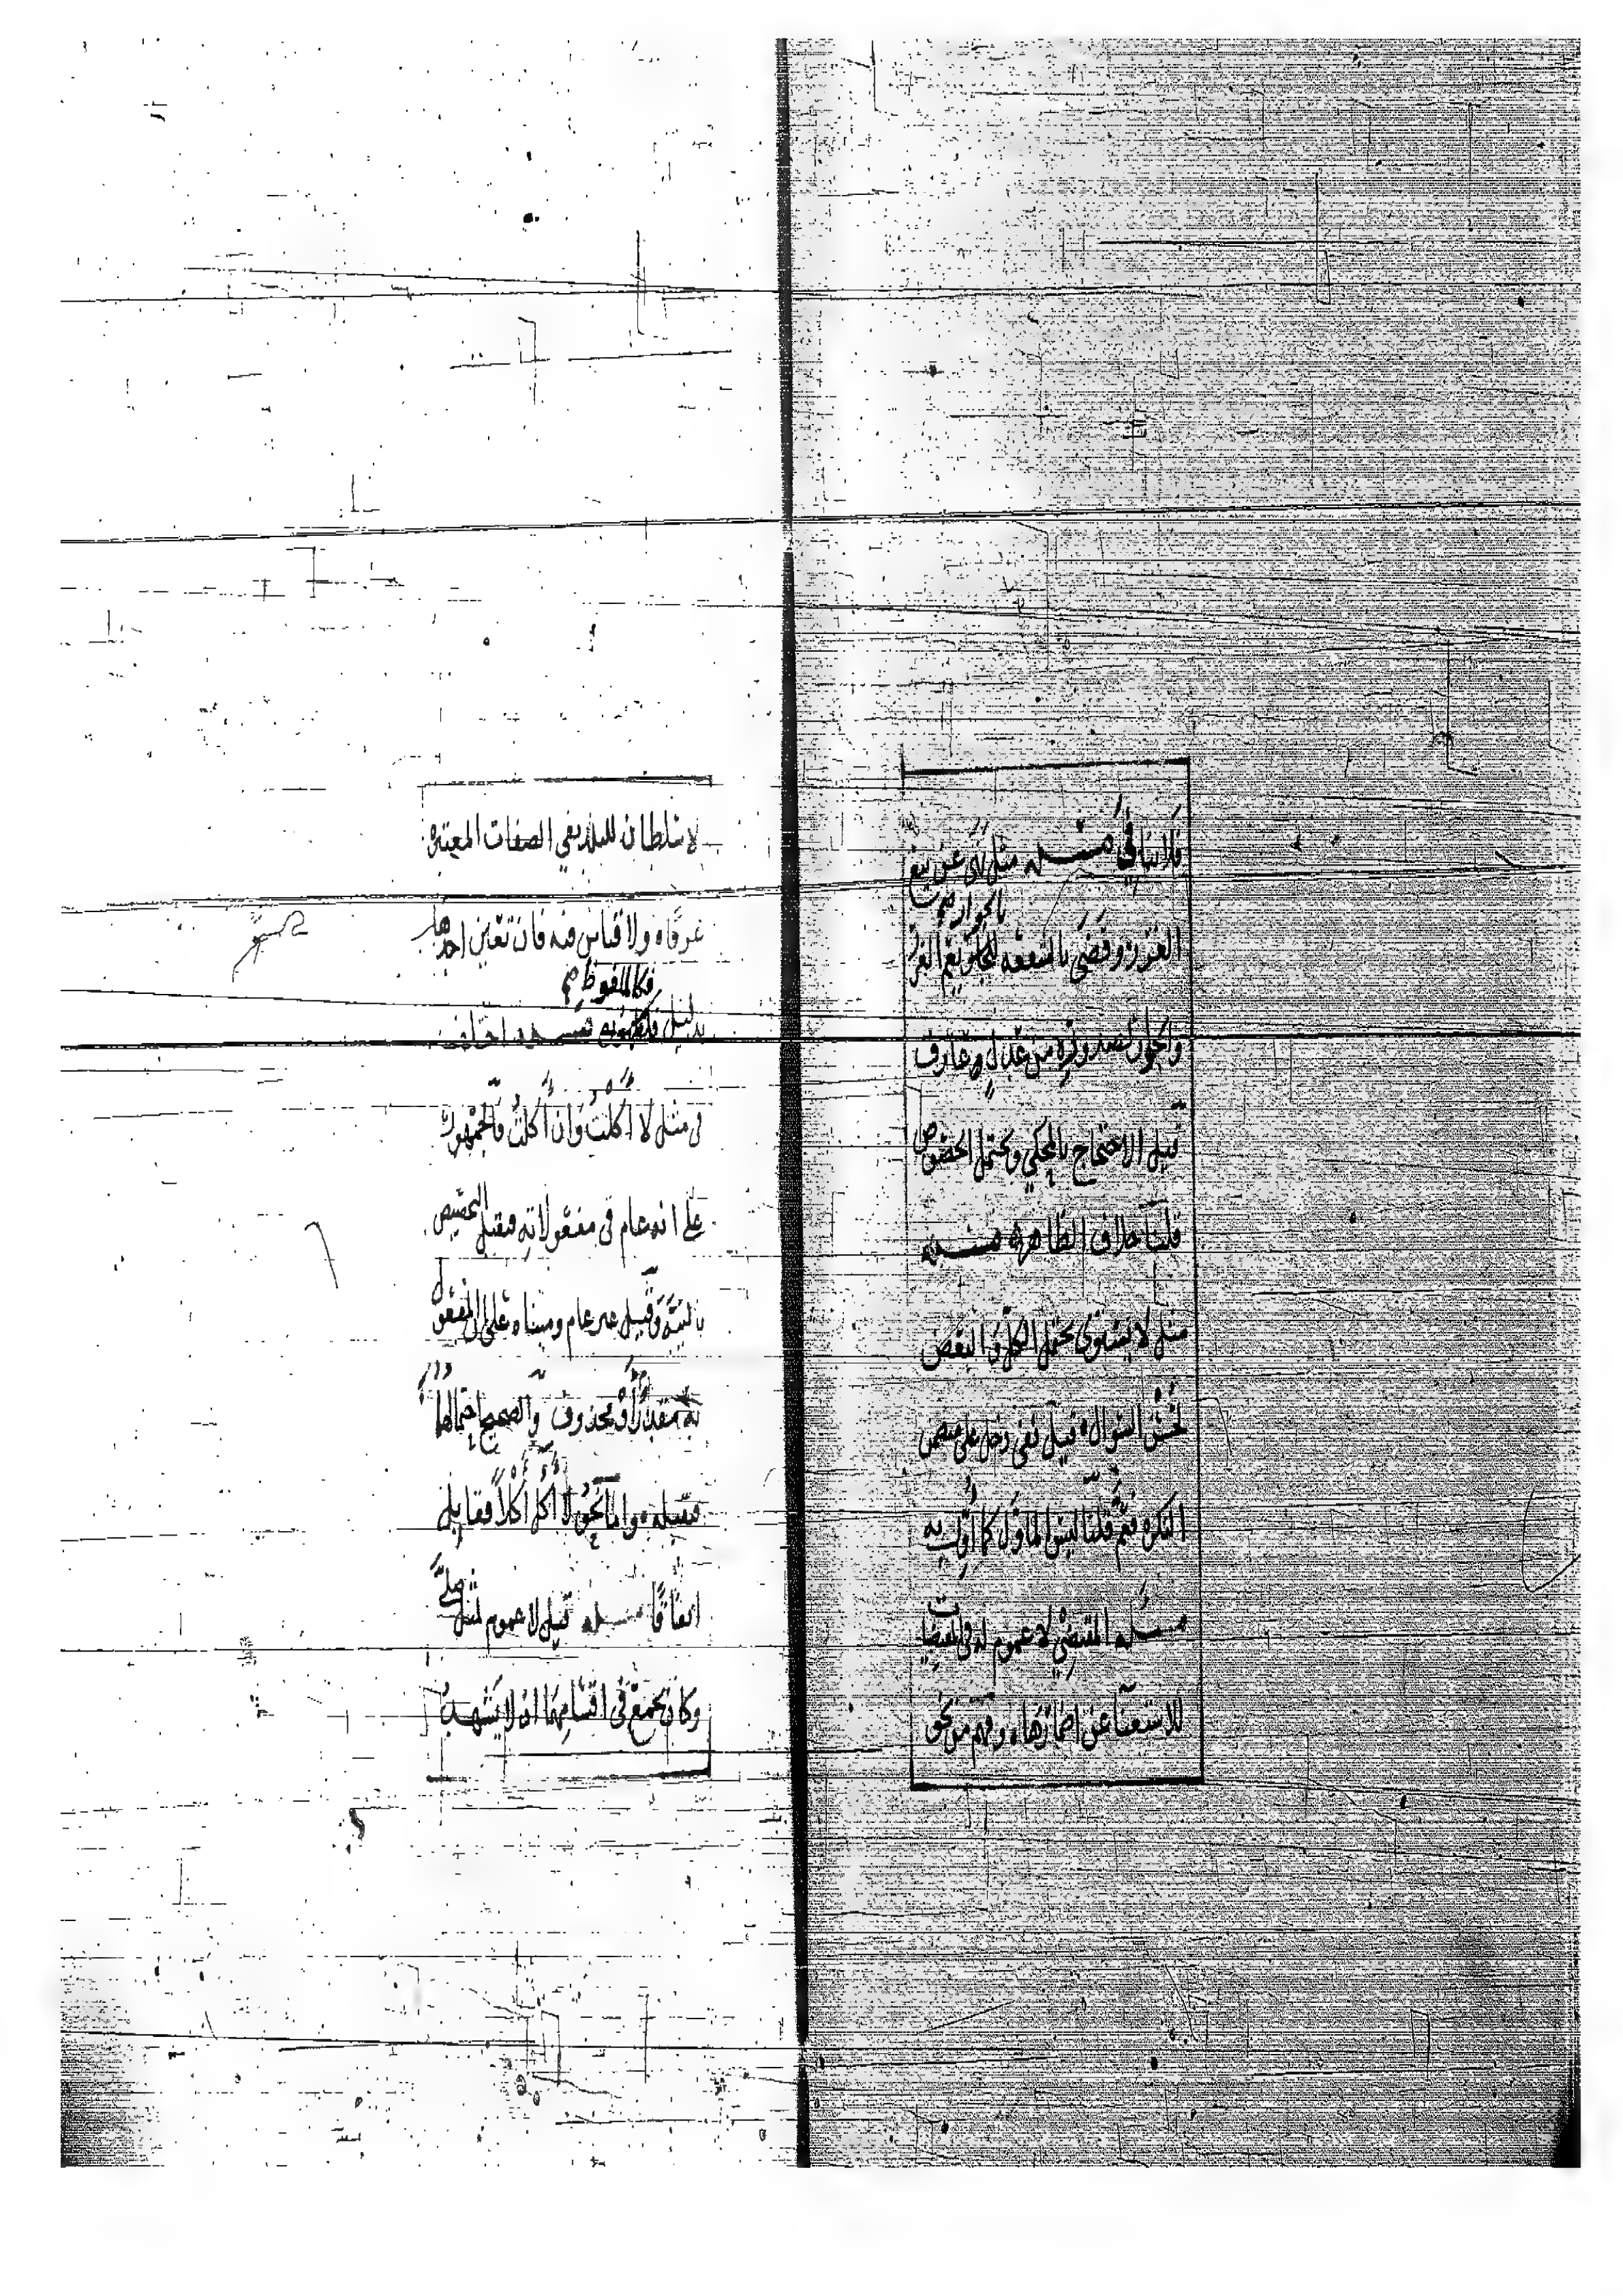 فلا ينافي مسئله مثل نهى عن بيع
بالجوار صح
الغرر وقضى بالشفعه للجار يعم الغرر
والجوار لصدوره من عدل عارف
قيل الاحتجاج بالمحكي ويحتمل الخصوص
قلنا خلاف الظاهر مسئله
مثل لا يستوي يحتمل الكل والبعض
لحسن السوال قيل نفي دخل على متضمن
النكره فعم قلنا ليس الماول كما اول به
مسئله المقتضي لا عموم له في المقتضيات
للاستغنا عن اضمارها وفهم من نحو
لا سلطان للبلد نفي الصفات المعتبره
عرفا ولا قياس فيه فان تعين احدها
فكالملفوظ صح
بدليل
في مثل لا اكلت وان اكلت فالجمهور
على انه عام في مفعولاته فيقبل التخصيص
بالنيه وقيل غير عام ومبناه على ان المفعول
به مقدر او محذوف والصحيح احتمالهما
فيقبله واما نحو لا اكل اكلا فقابل
اتفاقا مسئله قيل لا عموم لمثل صلى
وكان يجمع في اقسامهما اذ لا يشهد